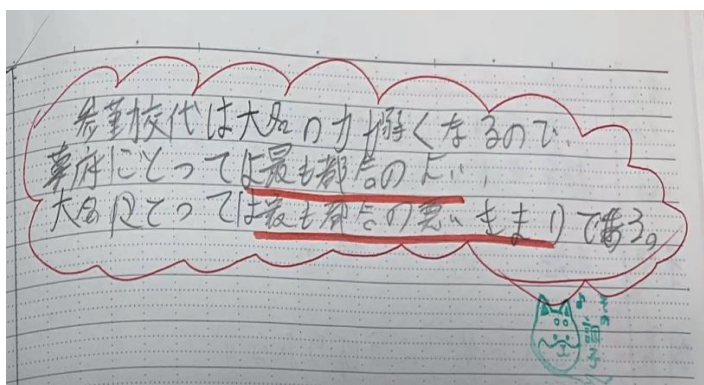 参勤交代は大名の力が弱くなるので、
幕府にとっては最も都合のよい、
大名にとっては最も都合の悪いきまりである。